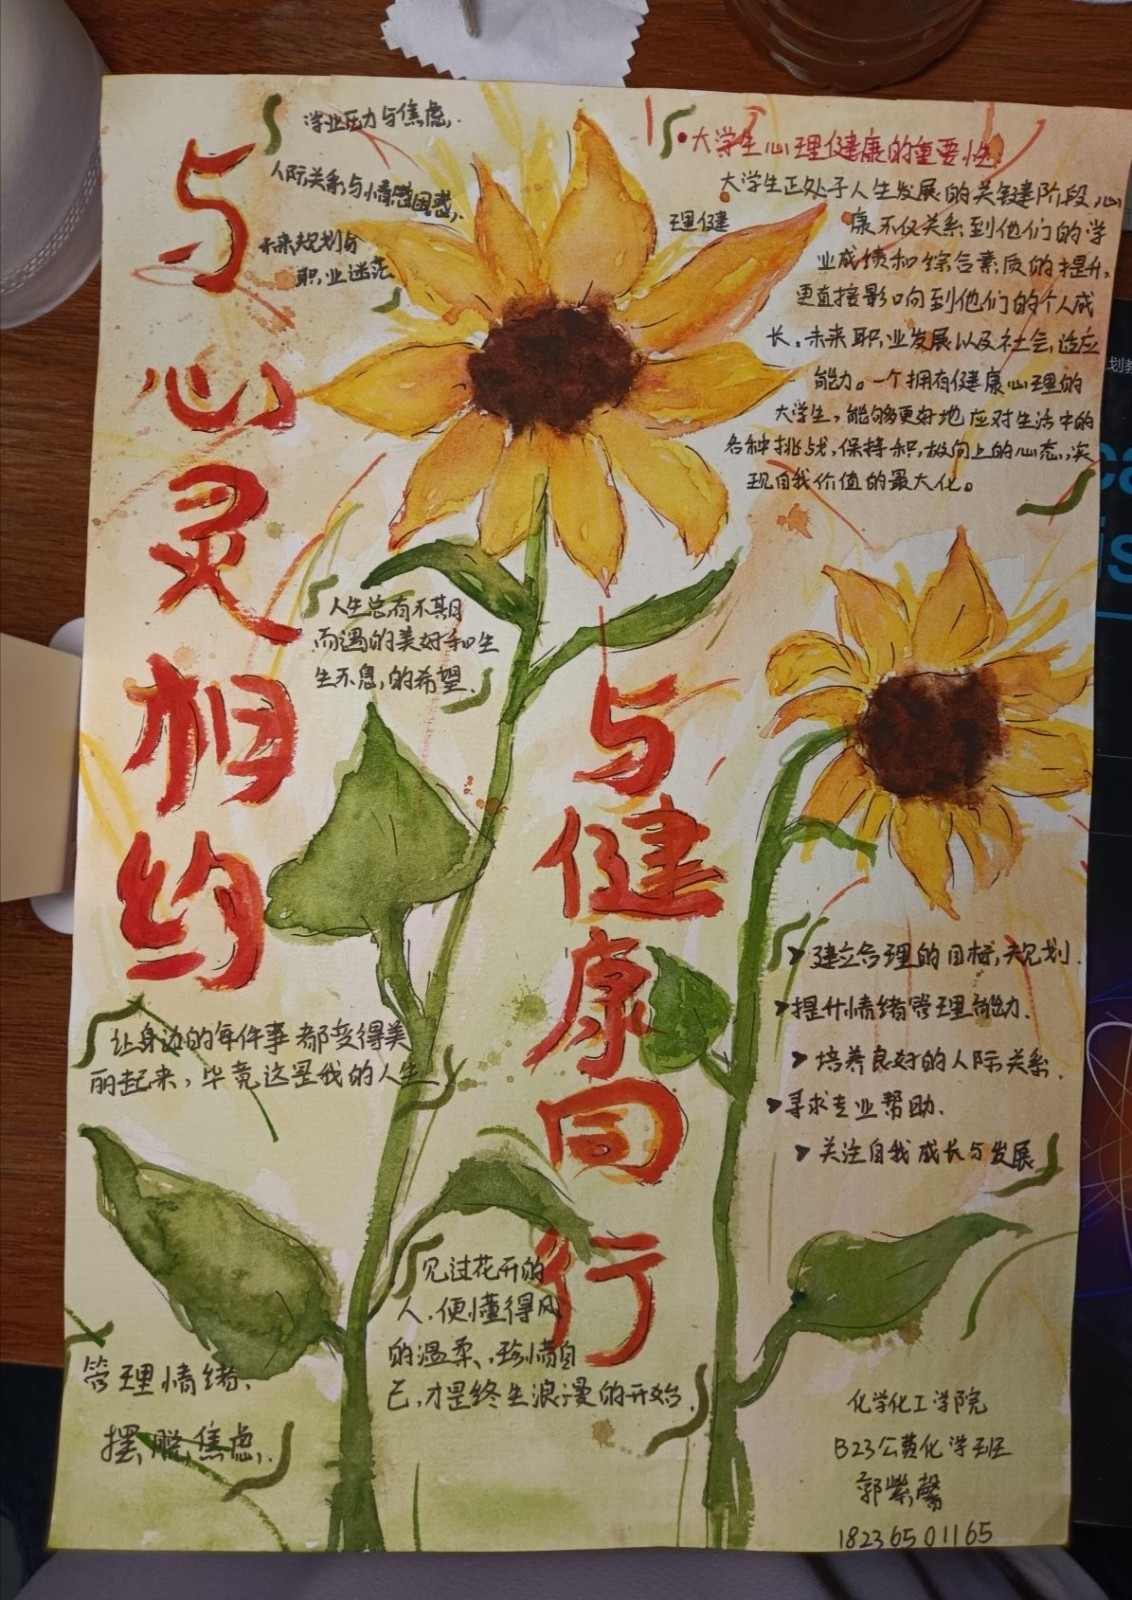 与心灵相约
学业压力与焦虑.
人际关系与情感困惑.
未来规划与
职业迷茫
•大学生心理健康的重要性
大学生正处于人生发展的关键阶段,心
理健
康不仅关系到他们的学
业成绩和综合素质的提升,
更直接影响到他们的个人成
长、未来职业发展以及社会适应
能力。一个拥有健康心理的
大学生,能够更好地应对生活中的
各种挑战,保持积极向上的心态,实
现自我价值的最大化。
人生总有不期
而遇的美好和生
生不息的希望.
与健康同行
让身边的每件事都变得美
丽起来,毕竟这是我的人生
➤建立合理的目标,规划.
➤提升情绪管理能力.
➤培养良好的人际关系.
➤寻求专业帮助.
➤关注自我成长与发展
见过花开的
人,便懂得风
的温柔、珍惜自
己,才是终生浪漫的开始.
管理情绪.
摆脱焦虑.
化学化工学院
B23公费化学班
郭紫馨
18236501165